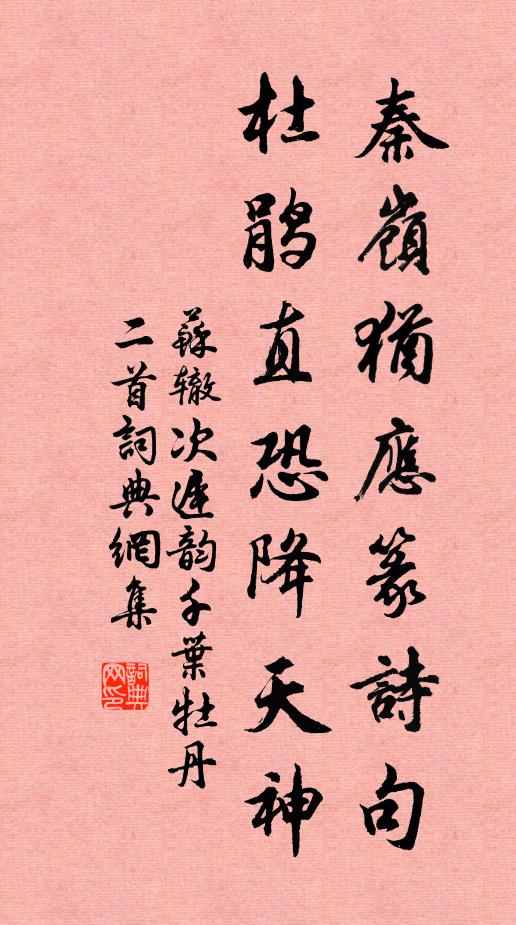 秦嶺猶應篆詩句
杜鹃直恐降天神
蘇辙次遲韵千葉牡丹
二首詞典網集
詞典网印